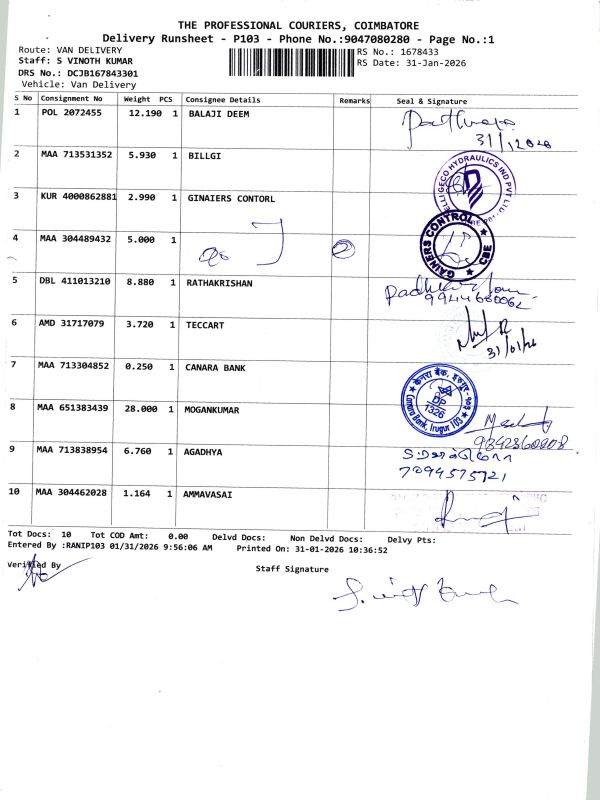 THE PROFESSIONAL COURIERS, COIMBATORE
Delivery Runsheet - P103 - Phone No.:9047080280 - Page No.:1
Route: VAN DELIVERY
RS No.: 1678433
Staff: S VINOTH KUMAR
RS Date: 31-Jan-2026
DRS No.: DCJB167843301
Vehicle: Van Delivery
S No Consignment No Weight PCS Consignee Details Remarks Seal & Signature
1 POL 2072455 12.190 1 BALAJI DEEM
31/1/2026
2 MAA 713531352 5.930 1 BILLGI
ELLIGECO HYDRAULICS IND PVT LTD
3 KUR 4000862881 2.990 1 GINAIERS CONTORL
GAINERS CONTROL CBE
4 MAA 304489432 5.000 1
2
5 DBL 411013210 8.880 1 RATHAKRISHAN
9944680062
6 AMD 31717079 3.720 1 TECCART
31/01/26
7 MAA 713304852 0.250 1 CANARA BANK
केनरा बैंक, इरुगूर-103
DP
1326
Canara Bank, Irugur 103
8 MAA 651383439 28.000 1 MOGANKUMAR
9842360008
9 MAA 713838954 6.760 1 AGADHYA
7094575721
10 MAA 304462028 1.164 1 AMMAVASAI
Tot Docs: 10 Tot COD Amt: 0.00 Delvd Docs: Non Delvd Docs: Delvy Pts:
Entered By :RANIP103 01/31/2026 9:56:06 AM Printed On: 31-01-2026 10:36:52
Verified By
Staff Signature